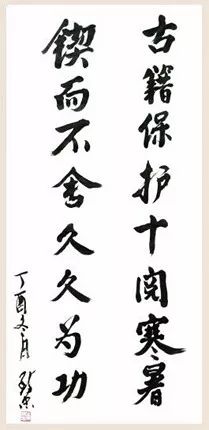 古籍保护十阅寒暑
鍥而不舍久久为功
丁酉冬月